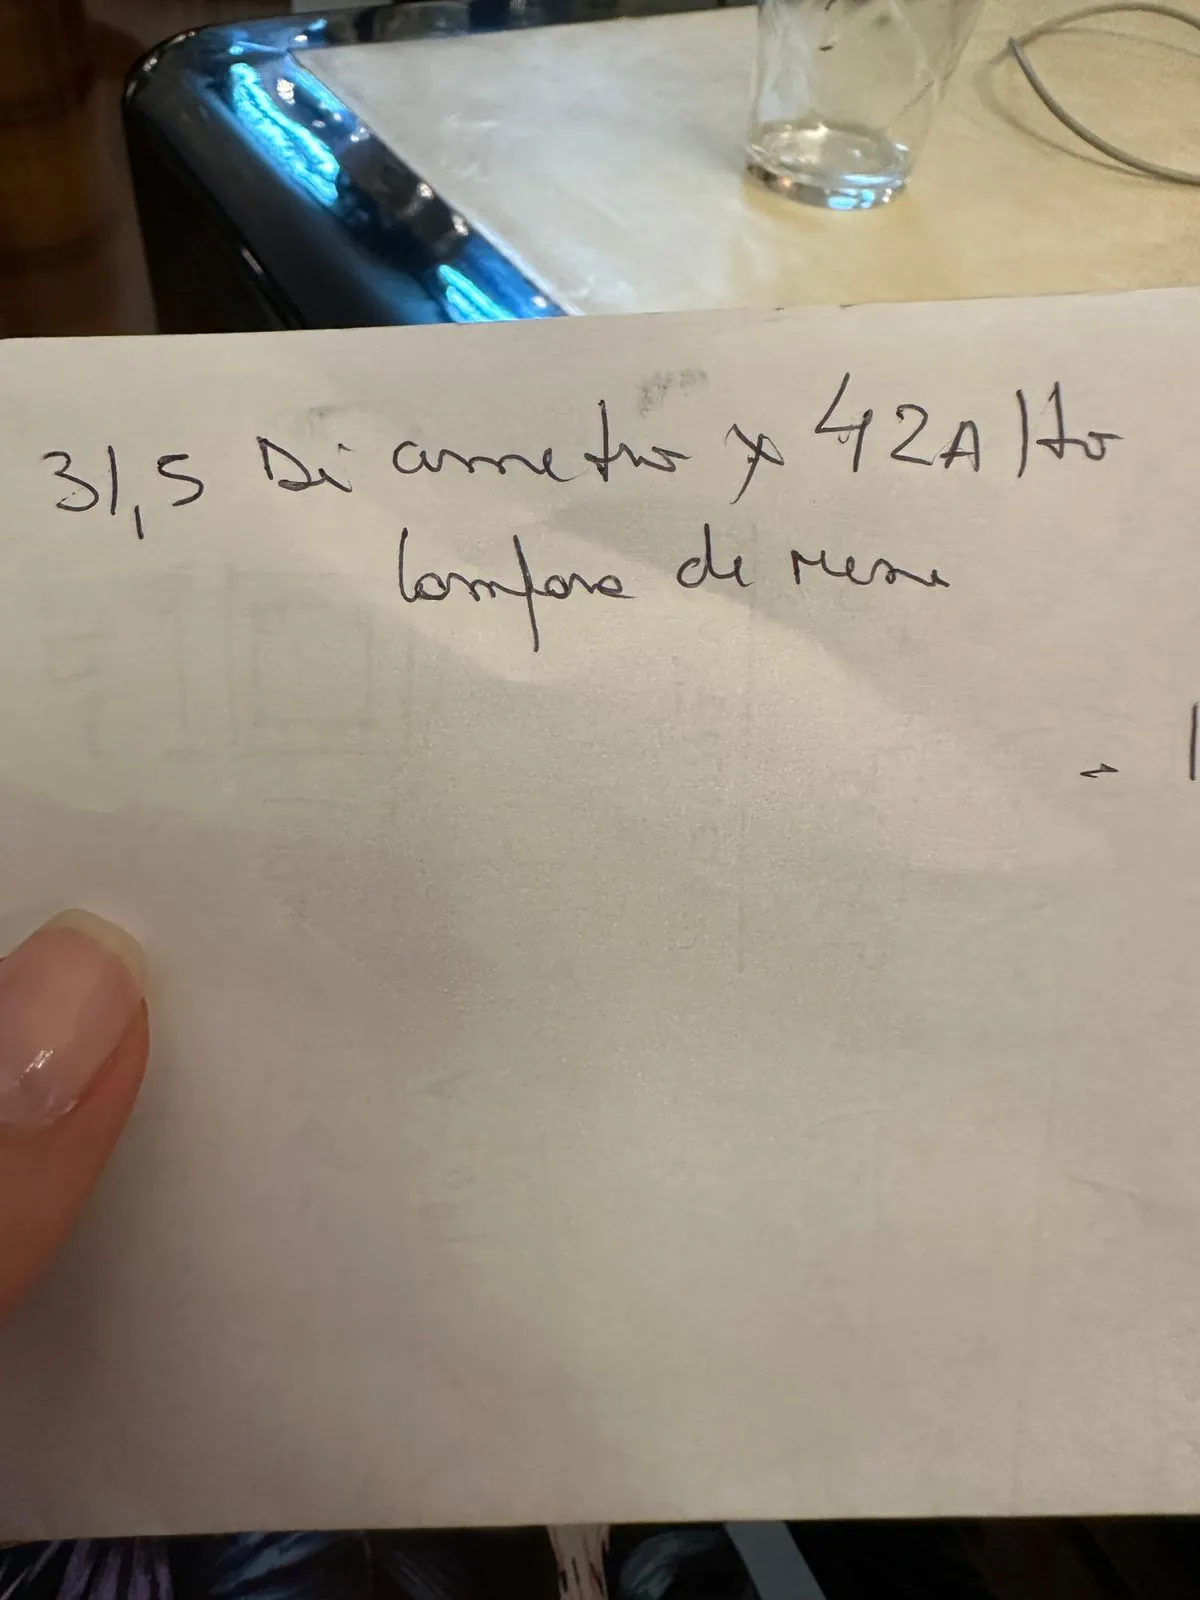 31,5 Diametro x 42 Alto
lampara de mesa